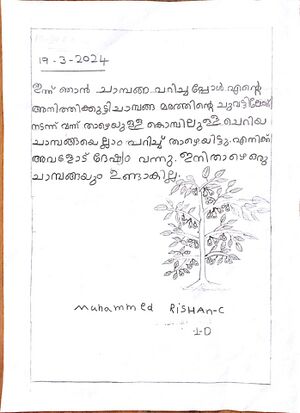 19-3-2024
ഇന്ന് ഞാൻ ചാമ്പങ്ങ പറിച്ചപ്പോൾ എന്റെ
അനിത്തിക്കുട്ടി ചാമ്പങ്ങ മരത്തിന്റെ ചുവട്ടിലേക്ക്
നടന്ന് വന്ന് താഴെയുള്ള കൊമ്പിലുള്ള ചെറിയ
ചാമ്പങ്ങയെല്ലാം പറിച്ച് താഴെയിട്ടു. എനിക്ക്
അവളോട് ദേഷ്യം വന്നു. ഇനി താഴെ ഒരു
ചാമ്പങ്ങയും ഉണ്ടാകില്ല.
Muhammed RiSHAn-C
1-D